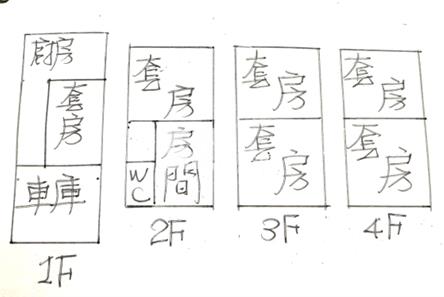 廚房
套房
車庫
1F
套房
房間
WC
2F
套房
套房
3F
套房
套房
4F